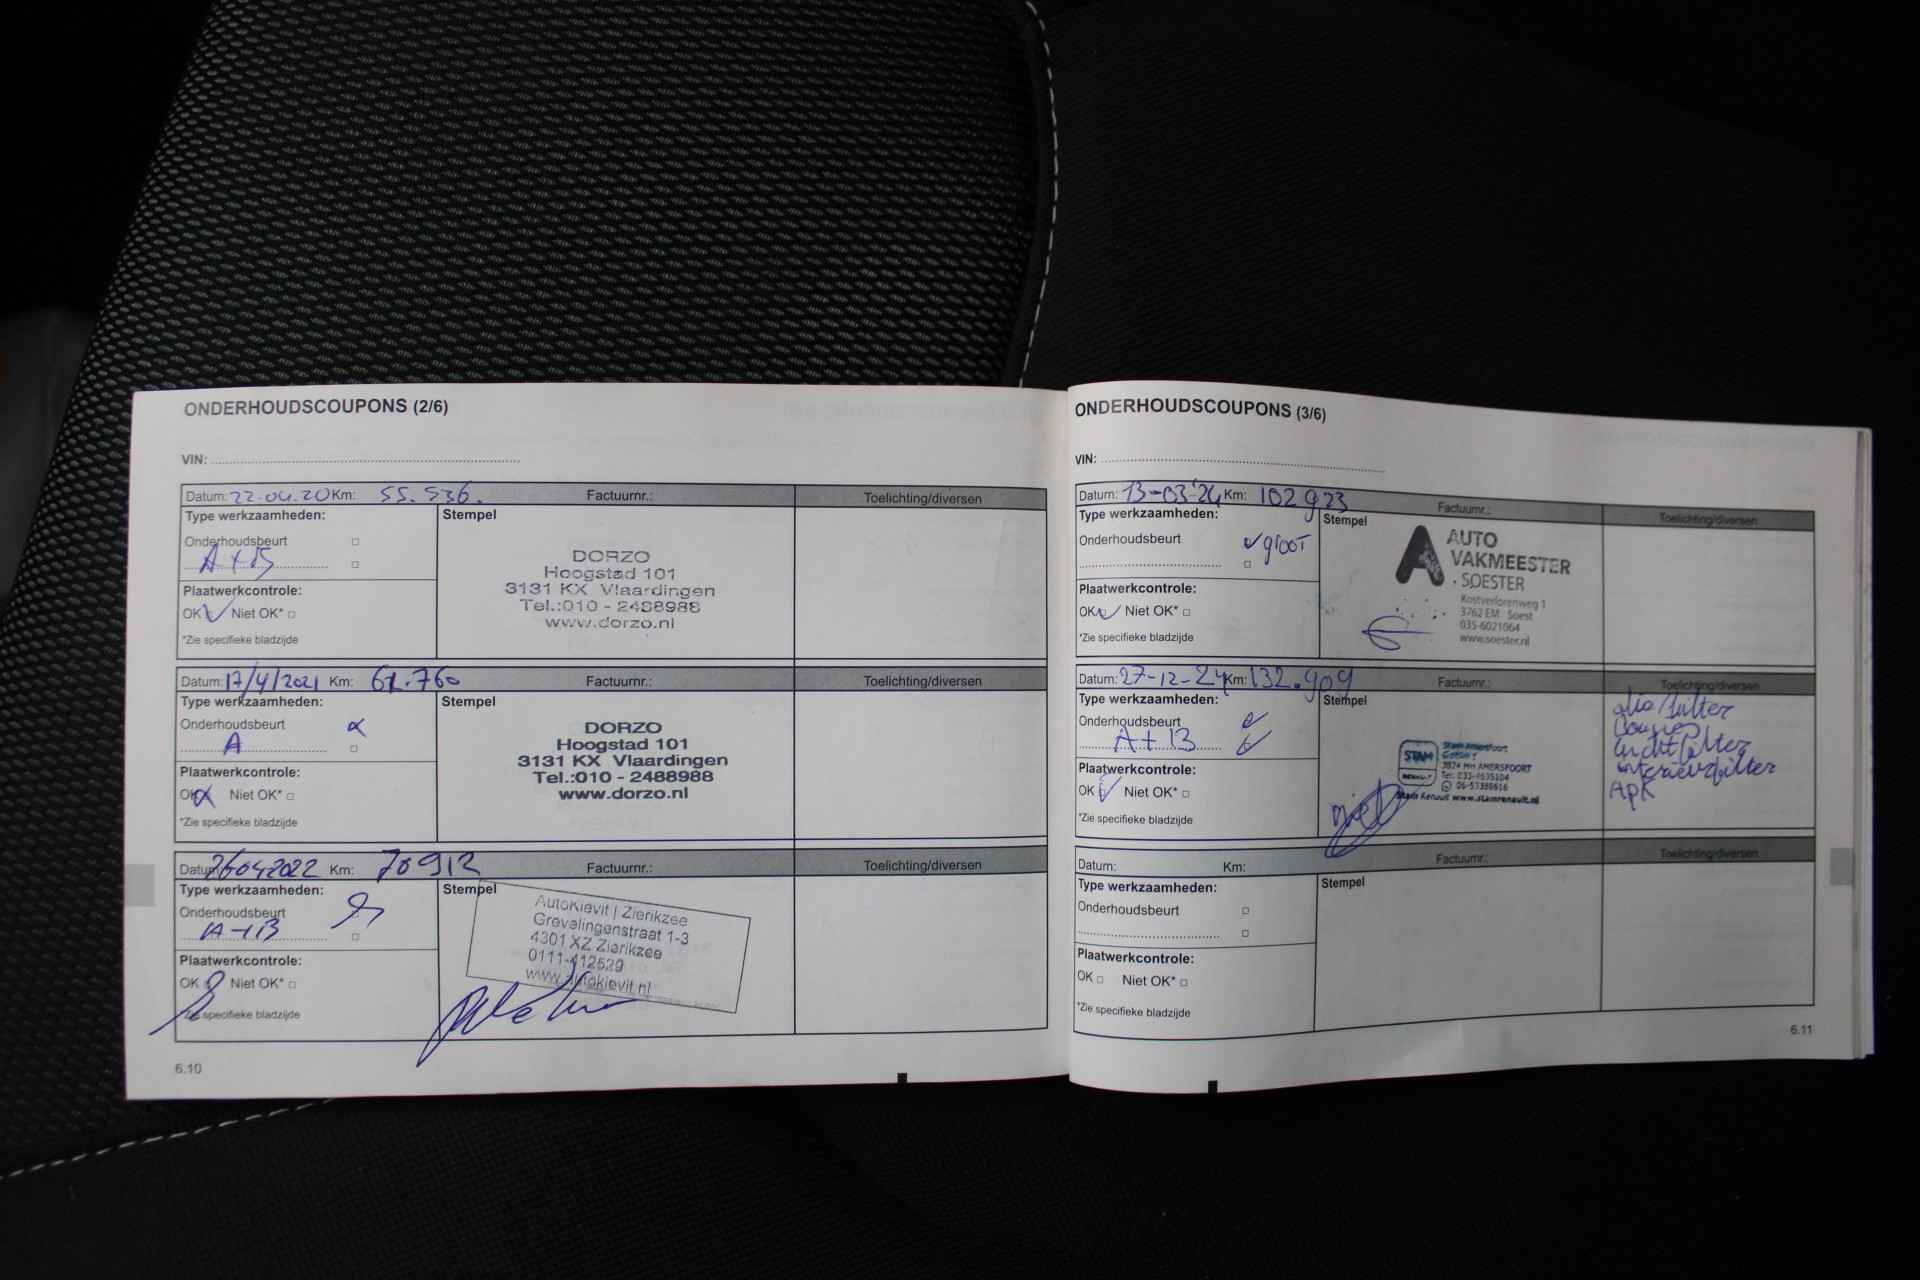 ONDERHOUDSCOUPONS (2/6)
VIN:
Datum: 22-04-20 Km: 55.536. Factuurnr.: Toelichting/diversen
Type werkzaamheden: Stempel
Onderhoudsbeurt
A + B
Plaatwerkcontrole:
OK Niet OK*
*Zie specifieke bladzijde
DORZO
Hoogstad 101
3131 KX Vlaardingen
Tel.:010 - 2488988
www.dorzo.nl
Datum: 17/4/2021 Km: 61.760 Factuurnr.: Toelichting/diversen
Type werkzaamheden: Stempel
Onderhoudsbeurt
A
Plaatwerkcontrole:
OK Niet OK*
*Zie specifieke bladzijde
DORZO
Hoogstad 101
3131 KX Vlaardingen
Tel.:010 - 2488988
www.dorzo.nl
Datum: 26042022 Km: 70912 Factuurnr.: Toelichting/diversen
Type werkzaamheden: Stempel
Onderhoudsbeurt
A+B
Plaatwerkcontrole:
OK Niet OK*
*Zie specifieke bladzijde
AutoKievit | Zierikzee
Grevelingenstraat 1-3
4301 XZ Zierikzee
0111-412529
www.autokievit.nl
6.10
ONDERHOUDSCOUPONS (3/6)
VIN:
Datum: 13-03'24 Km: 102923 Factuurnr.: Toelichting/diversen
Type werkzaamheden: Stempel
Onderhoudsbeurt groot
Plaatwerkcontrole:
OK Niet OK*
*Zie specifieke bladzijde
AUTO
VAKMEESTER
SOESTER
Kostverlorenweg 1
3762 EM Soest
035-6021064
www.soester.nl
Datum: 27-12-24 Km: 132.909 Factuurnr.: Toelichting/diversen
Type werkzaamheden: Stempel
Onderhoudsbeurt
A + B
Plaatwerkcontrole:
OK Niet OK*
*Zie specifieke bladzijde
STAM
RENAULT
Stam Amersfoort
AMERSFOORT
Tel: 033-4635104
06-53388616
Stam Renault www.stamrenault.nl
olie/filter
luchtfilter
interieurfilter
APK
Datum: Km: Factuurnr.: Toelichting/diversen
Type werkzaamheden: Stempel
Onderhoudsbeurt
Plaatwerkcontrole:
OK Niet OK*
*Zie specifieke bladzijde
6.11